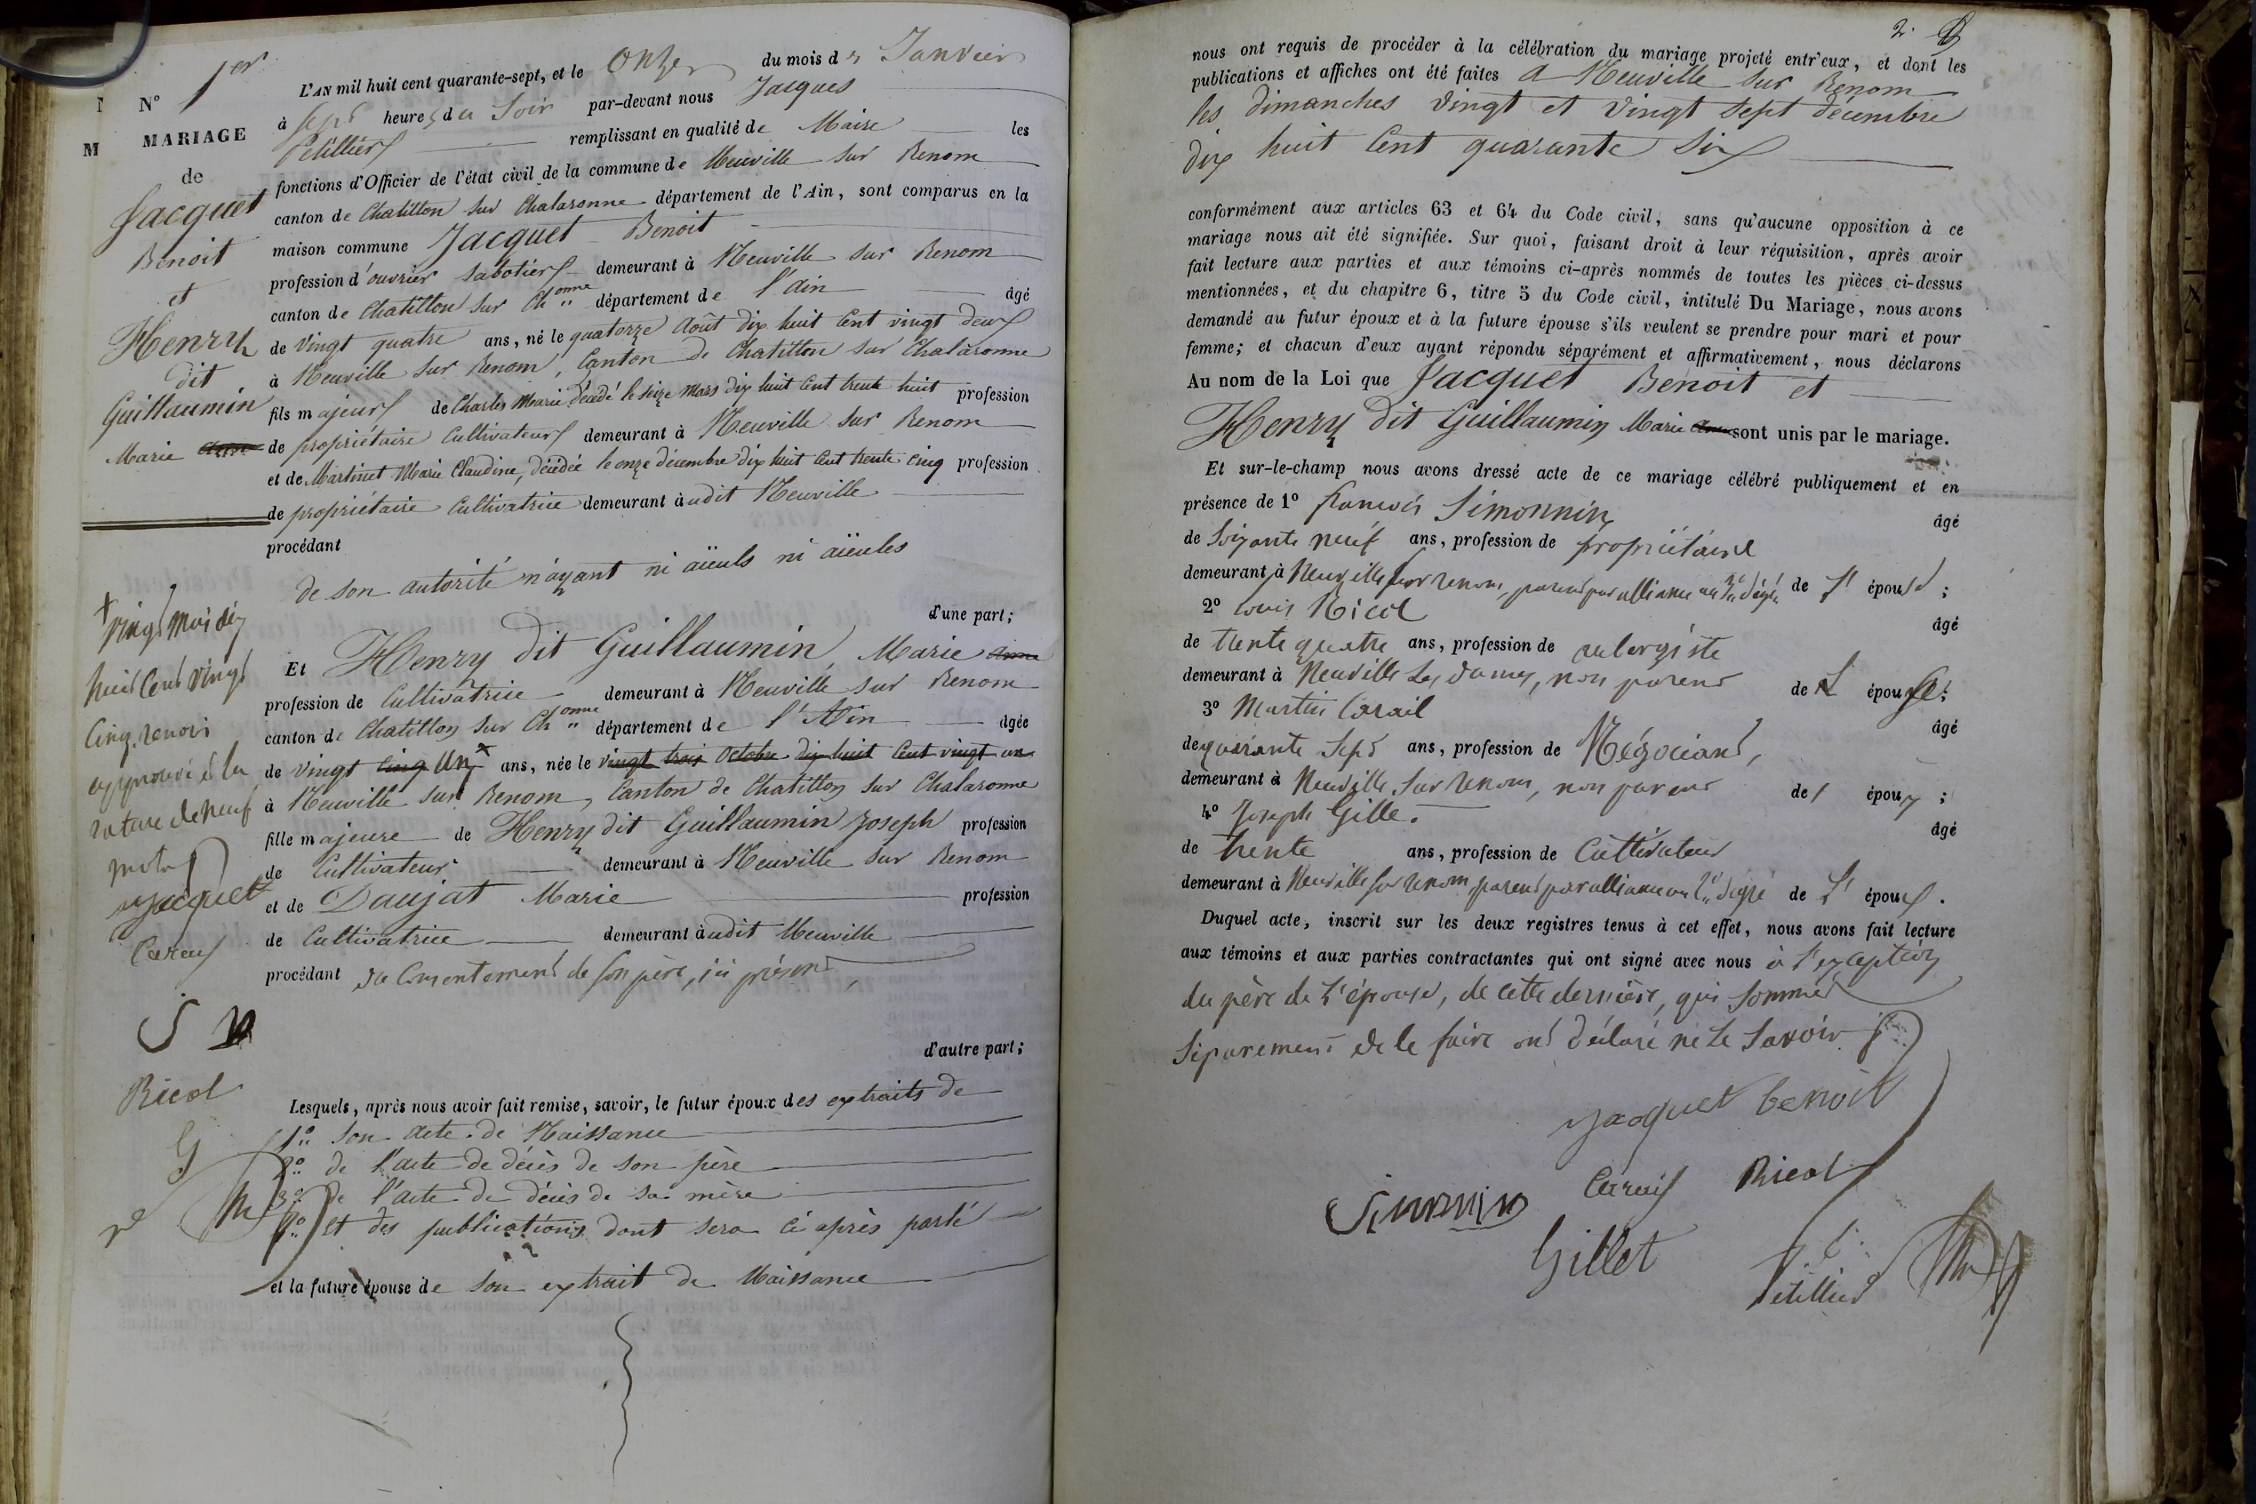 N° 1er
MARIAGE
de
Jacquet
Benoit
et
Henry
dit
Guillaumin
Marie Anne
L'AN mil huit cent quarante-sept, et le onze du mois de Janvier
à sept heures du Soir par-devant nous Jacques
Petillier remplissant en qualité de Maire les
fonctions d'Officier de l'état civil de la commune de Neuville sur Renom
canton de Chatillon sur Chalaronne département de l'Ain, sont comparus en la
maison commune Jacquet Benoit
profession d'ouvrier sabotier demeurant à Neuville sur Renom
canton de Chatillon sur Ch"onne département de l'Ain âgé
de vingt quatre ans, né le quatorze Août dix huit cent vingt deux
à Neuville sur Renom, Canton de Chatillon sur Chalaronne
fils majeur de Charles Marie décédé le seize mars dix huit cent trente huit profession
de propriétaire Cultivateur demeurant à Neuville sur Renom
et de Martinet Marie Claudine, décédée le onze décembre dix huit cent trente cinq profession
de propriétaire Cultivatrice demeurant audit Neuville
procédant
de son autorité n'ayant ni aïeuls ni aïeules
d'une part;
Et Henry dit Guillaumin, Marie Anne
profession de Cultivatrice demeurant à Neuville sur Renom
canton de Chatillon sur Ch"onne département de l'Ain âgée
de vingt cinq un x ans, née le vingt trois Octobre dix huit cent vingt un
à Neuville sur Renom, Canton de Chatillon sur Chalaronne
fille majeure de Henry dit Guillaumin Joseph profession
de Cultivateur demeurant à Neuville sur Renom
et de Daujat Marie profession
de Cultivatrice demeurant audit Neuville
procédant du Consentement de son père, ici présent,
d'autre part;
x vingt mai dix
huit cent vingt
cinq. renvoi
approuvé et la
rature de neuf
mots
Jacquet
S
Ricol
G
Lesquels, après nous avoir fait remise, savoir, le futur époux des extraits de
1° son acte de Naissance
2° de l'acte de décès de son père
3° de l'acte de décès de sa mère
4° et des publications dont sera ci après parlé
et la future épouse de son extrait de Naissance
2.
nous ont requis de procéder à la célébration du mariage projeté entr'eux, et dont les
publications et affiches ont été faites à Neuville sur Renom
les dimanches vingt et vingt sept décembre
dix huit Cent quarante six
conformément aux articles 63 et 64 du Code civil, sans qu'aucune opposition à ce
mariage nous ait été signifiée. Sur quoi, faisant droit à leur réquisition, après avoir
fait lecture aux parties et aux témoins ci-après nommés de toutes les pièces ci-dessus
mentionnées, et du chapitre 6, titre 5 du Code civil, intitulé Du Mariage, nous avons
demandé au futur époux et à la future épouse s'ils veulent se prendre pour mari et pour
femme; et chacun d'eux ayant répondu séparément et affirmativement, nous déclarons
Au nom de la Loi que Jacquet Benoit et
Henry dit Guillaumin Marie Anne sont unis par le mariage.
Et sur-le-champ nous avons dressé acte de ce mariage célébré publiquement et en
présence de 1° françois Simonnin âgé
de Soixante neuf ans, profession de propriétaire
demeurant à Neuville sur renom, parent par alliance au degré de l' épouse;
2° Louis Ricol âgé
de trente quatre ans, profession de aubergiste
demeurant à Neuville les dames, non parent de l' épouse;
3° Martin âgé
de quarante sept ans, profession de Négociant,
demeurant à Neuville sur renom, non parent de l' époux;
4° Joseph Gille. âgé
de trente ans, profession de Cultivateur
demeurant à Neuville sur renom, parent par alliance au 2e degré de l' époux.
Duquel acte, inscrit sur les deux registres tenus à cet effet, nous avons fait lecture
aux témoins et aux parties contractantes qui ont signé avec nous à l'exception
du père de l'épouse, de cette dernière, qui sommés
séparement de le faire ont déclaré ne le savoir
Jacquet benoit
Ricol
Simonnin
Gillet
Petillier